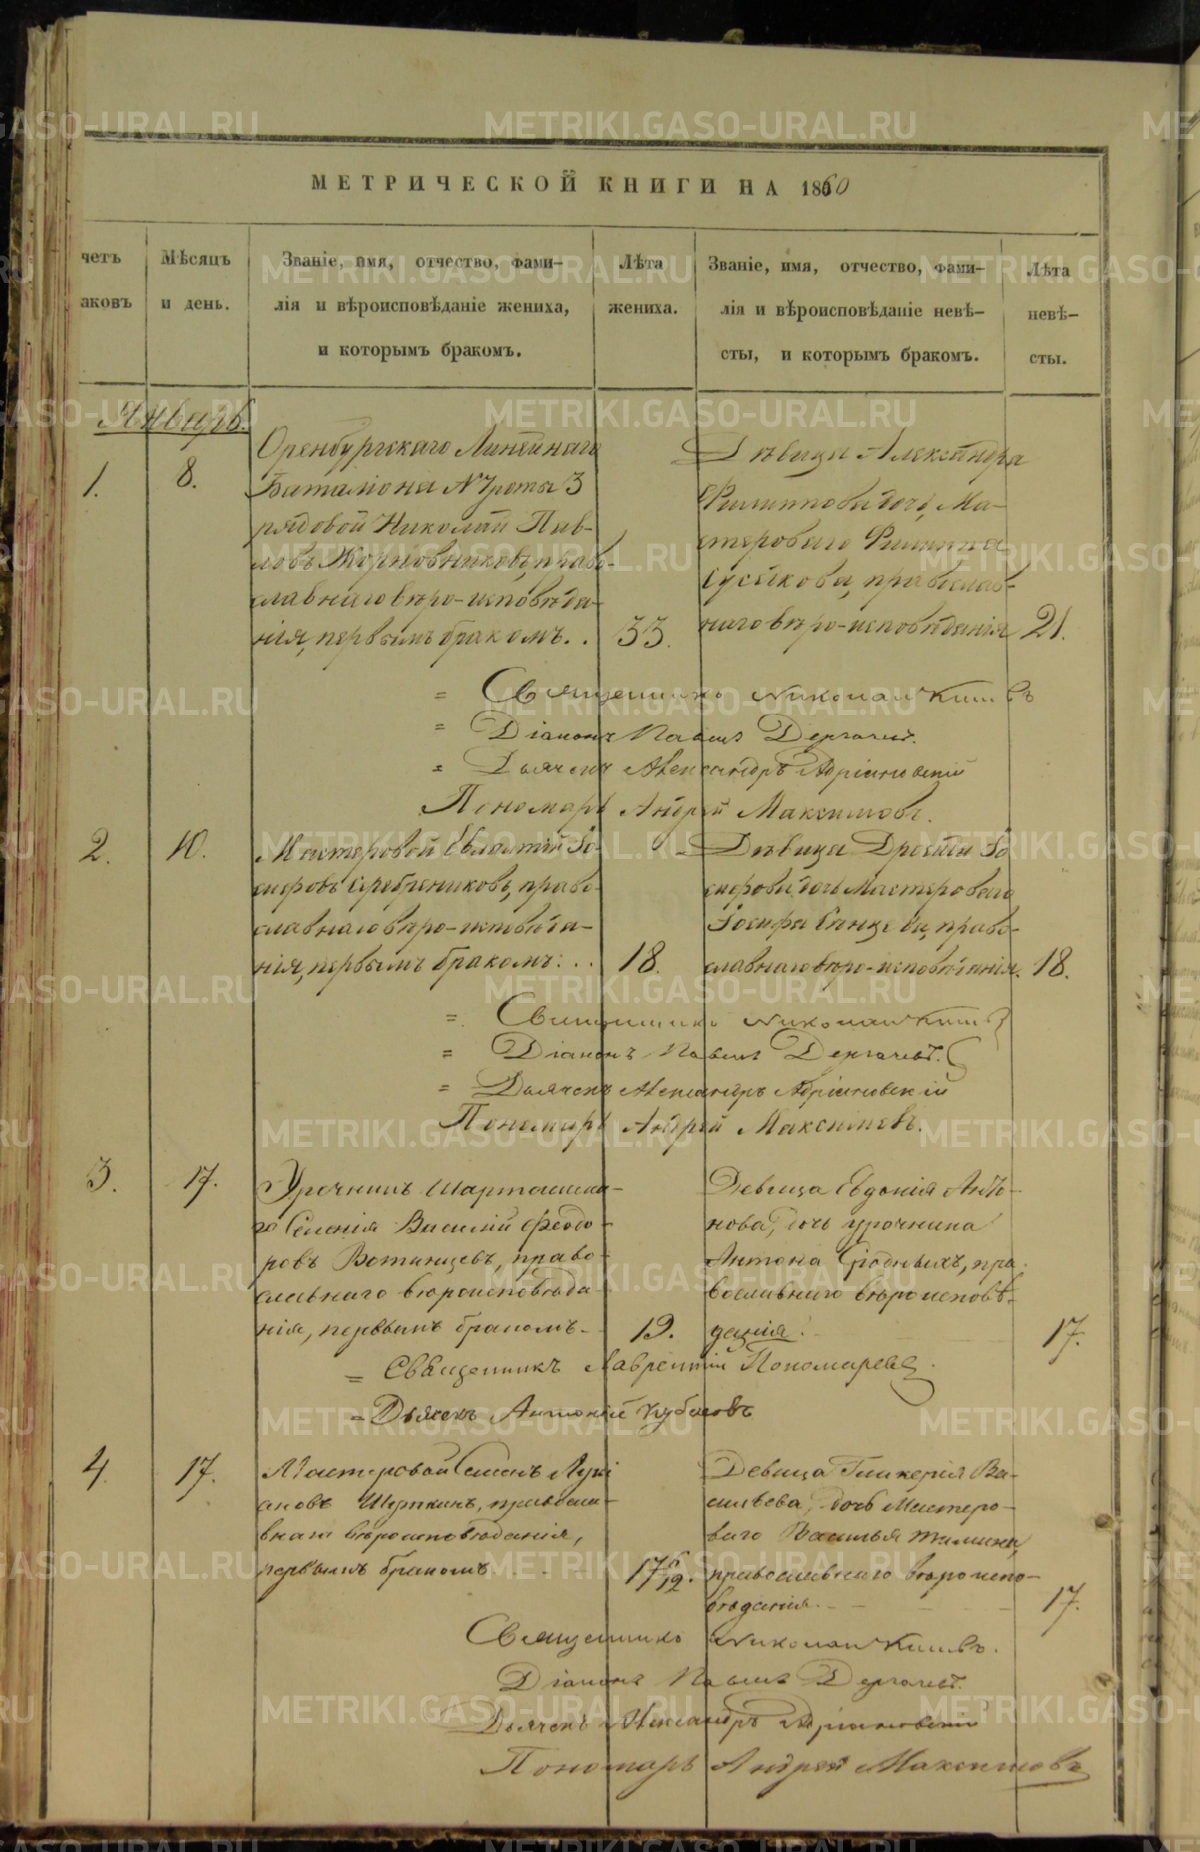 МЕТРИЧЕСКОЙ КНИГИ НА 1860
четъ
аковъ
Мѣсяцъ
и день.
Званіе, имя, отчество, фами-
лія и вѣроисповѣданіе жениха,
и которымъ бракомъ.
Лѣта
жениха.
Званіе, имя, отчество, фами-
лія и вѣроисповѣданіе невѣ-
сты, и которымъ бракомъ.
Лѣта
невѣ-
сты.
Январь.
1.
8.
Оренбургскаго Линейнаго
Баталіона № роты 3
рядовой Николай Пав-
ловъ Жерновниковъ, право-
славнаго вѣро-исповѣда-
нія, первымъ бракомъ..
33.
Дѣвица Александра
Филиппова дочь, Ма-
стероваго Филиппа
Сусѣкова, православ-
наго вѣро-исповѣданія
21.
= Священникъ Николай
= Діаконъ Павелъ Дергачевъ.
= Дьячекъ Александръ Адріановскій
Пономарь Андрей Максимовъ.
2.
10.
Мастеровой Евлампій Іо-
сифовъ Серебрениковъ, право-
славнаго вѣро-исповѣда-
нія, первымъ бракомъ...
18.
Дѣвица Іо-
сифова дочь Мастероваго
Іосифа право-
славнаго вѣро-исповѣданія.
18.
= Священникъ Николай
= Діаконъ Павелъ Дергачевъ.
= Дьячекъ Александръ Адріановскій
Пономарь Андрей Максимовъ.
3.
17.
Урочникъ Шарташска-
го Селенія Василій Феодо-
ровъ Вотинцевъ, право-
славнаго вѣроисповѣда-
нія, первымъ бракомъ.
19.
Девица Евдокія Анто-
нова, дочь урочника
Антона Сродныхъ, пра-
вославнаго вѣроисповѣ-
данія.
17.
= Священникъ Лаврентій Пономаревъ.
= Дьячекъ Антоній Кубасовъ
4.
17.
Мастеровой Семенъ Лукі
ановъ православ-
внаго вѣроисповѣданія,
первымъ бракомъ
17 6/12.
Девица Гликерія Ва-
сильева, дочь Мастеро-
ваго Василья
православнаго вѣроиспо-
вѣданія.
17.
Священникъ Николай
Діаконъ Павелъ Дергачевъ.
Дьячекъ Александръ Адріановскій
Пономарь Андрей Максимовъ